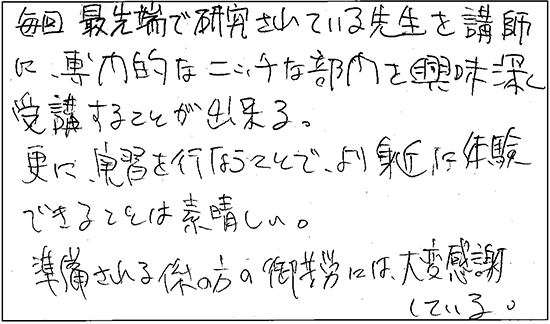 毎回最先端で研究されている先生を講師
に、専門的なニッチな部門を興味深く
受講することが出来る。
更に、実習を行なうことで、より身近に体験
できることは素晴しい。
準備される係の方の御苦労には大変感謝
している。